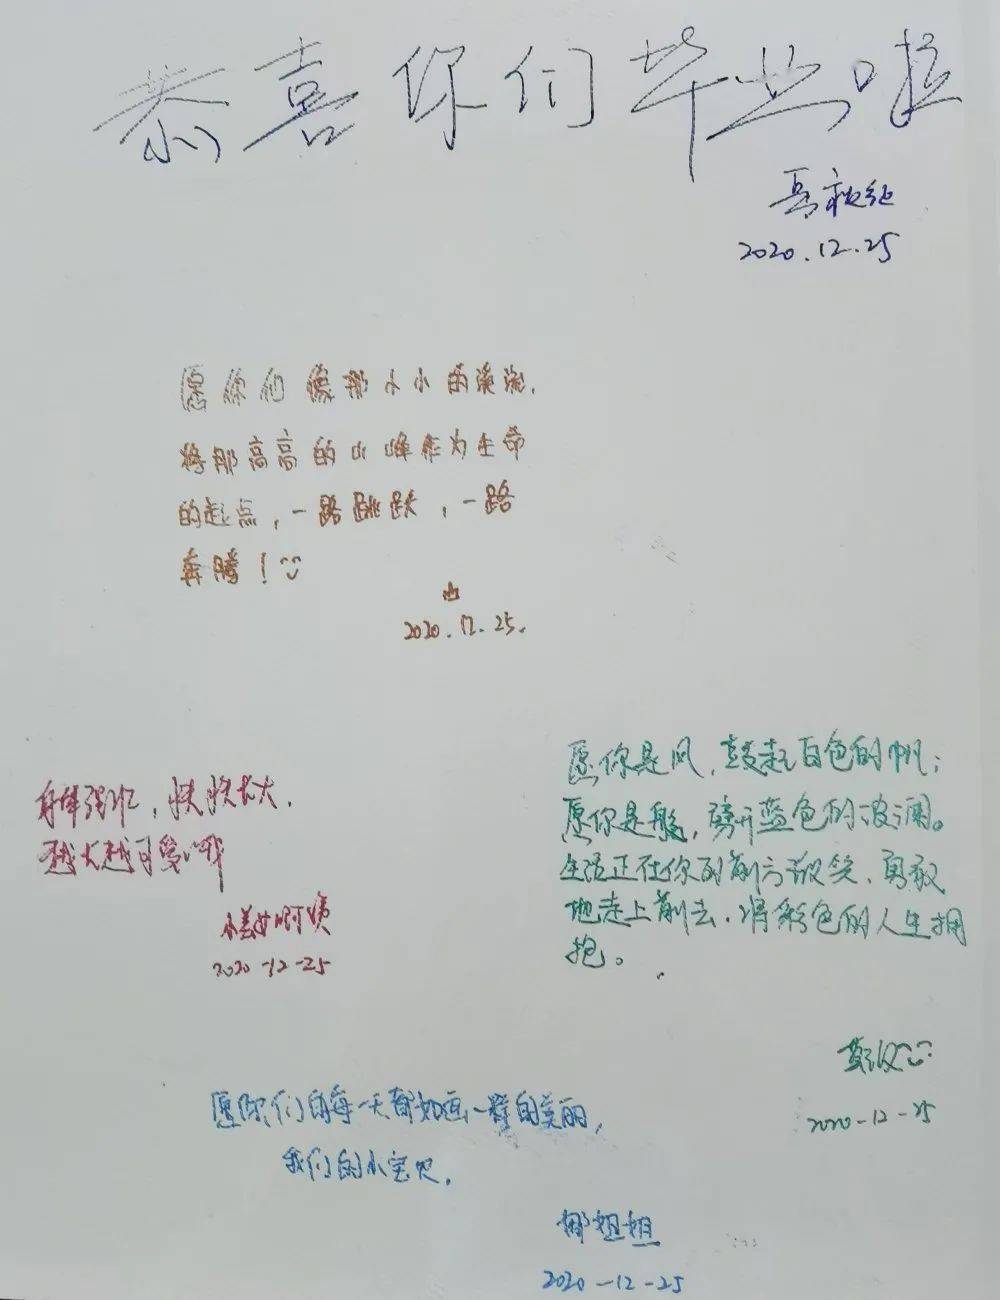 恭喜你们毕业啦
2020.12.25
愿你们像那小小的溪流,
将那高高的山峰作为生命
的起点,一路跳跃,一路
奔腾!
山
2020.12.25.
身体强壮,快快长大,
越长越可爱哦
小姜女阿姨
2020-12-25
愿你是风,鼓起白色的帆;
愿你是船,劈开蓝色的波澜。
生活正在你的前方微笑,勇敢
地走上前去,将彩色的人生拥
抱。
2020-12-25
愿你们的每一天都如画一样的美丽,
我们的小宝贝.
娜姐姐
2020-12-25